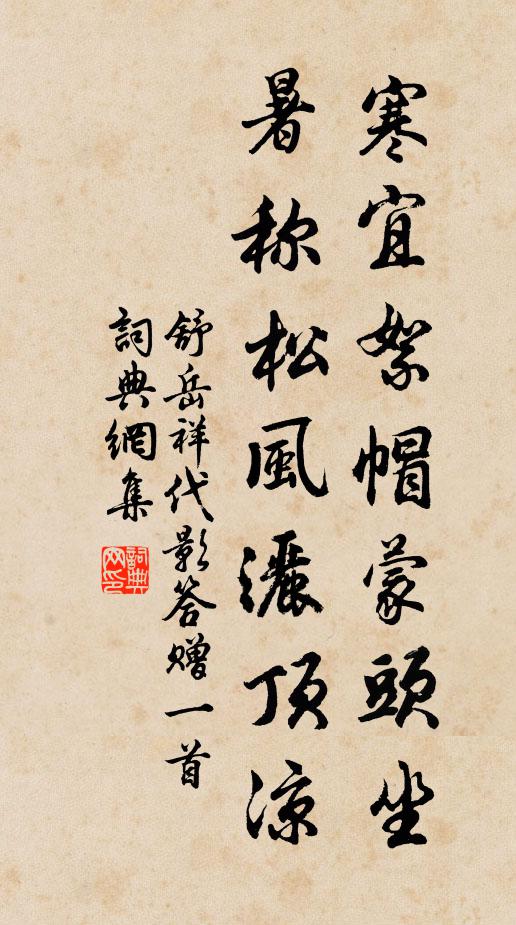 寒宜絮帽蒙頭坐
暑称松風灑頂涼
舒岳祥代影答贈一首
詞典網集
詞典网印